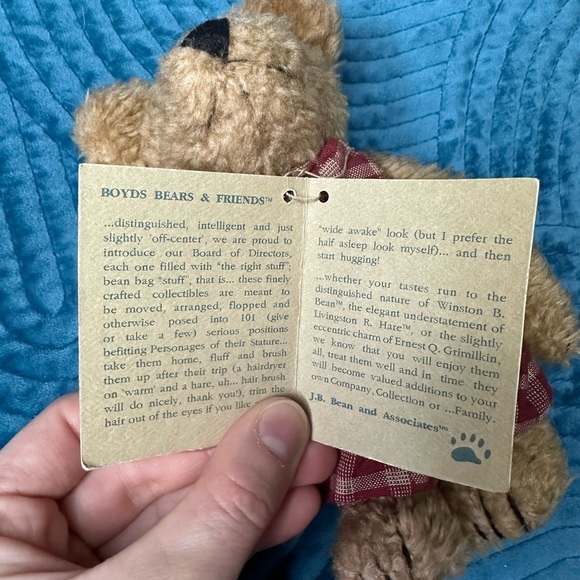 BOYDS BEARS & FRIENDS™
...distinguished, intelligent and just
slightly 'off-center', we are proud to
introduce our Board of Directors,
each one filled with "the right stuff";
bean bag "stuff", that is... these finely
crafted collectibles are meant to
be moved, arranged, flopped and
otherwise posed into 101 (give
or take a few) serious positions
befitting Personages of their Stature...
take them home, fluff and brush
them up after their trip (a hairdryer
on 'warm' and a hare, uh... hair brush
will do nicely, thank you!), trim the
hair out of the eyes if you like
"wide awake" look (but I prefer the
half asleep look myself)... and then
start hugging!
...whether your tastes run to the
distinguished nature of Winston B.
Bean™, the elegant understatement of
Livingston R. Hare™, or the slightly
eccentric charm of Ernest Q. Grimilkin,
we know that you will enjoy them
all, treat them well and in time, they
will become valued additions to your
own Company, Collection or ...Family.
J.B. Bean and Associates℠